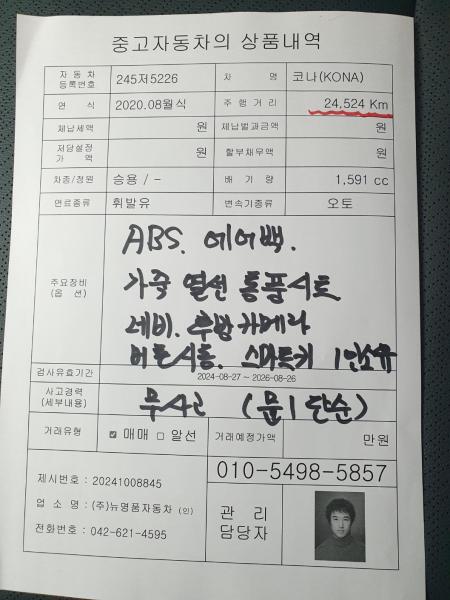 중고자동차의 상품내역
자 동 차 등록번호 245저5226 차 명 코나(KONA)
연 식 2020.08월식 주 행 거 리 24,524 Km
체납세액 원 체납벌과금액 원
저당설정 가 액 원 할부채무액 원
차종/정원 승용 / - 배 기 량 1,591 cc
연료종류 휘발유 변속기종류 오토
주요장비 (옵 션)
ABS. 에어백.
가죽 열선 통풍시트
네비. 후방카메라
버튼시동. 스마트키 1인소유
검사유효기간 2024-08-27 ~ 2026-08-26
사고경력 (세부내용) 무사고 (문1 단순)
거래유형 ☑ 매매 □ 알선 거래예정가액 만원
010-5498-5857
제시번호 : 20241008845
업 소 명 : (주)뉴명품자동차 (인)
전화번호 : 042-621-4595
관 리
담당자